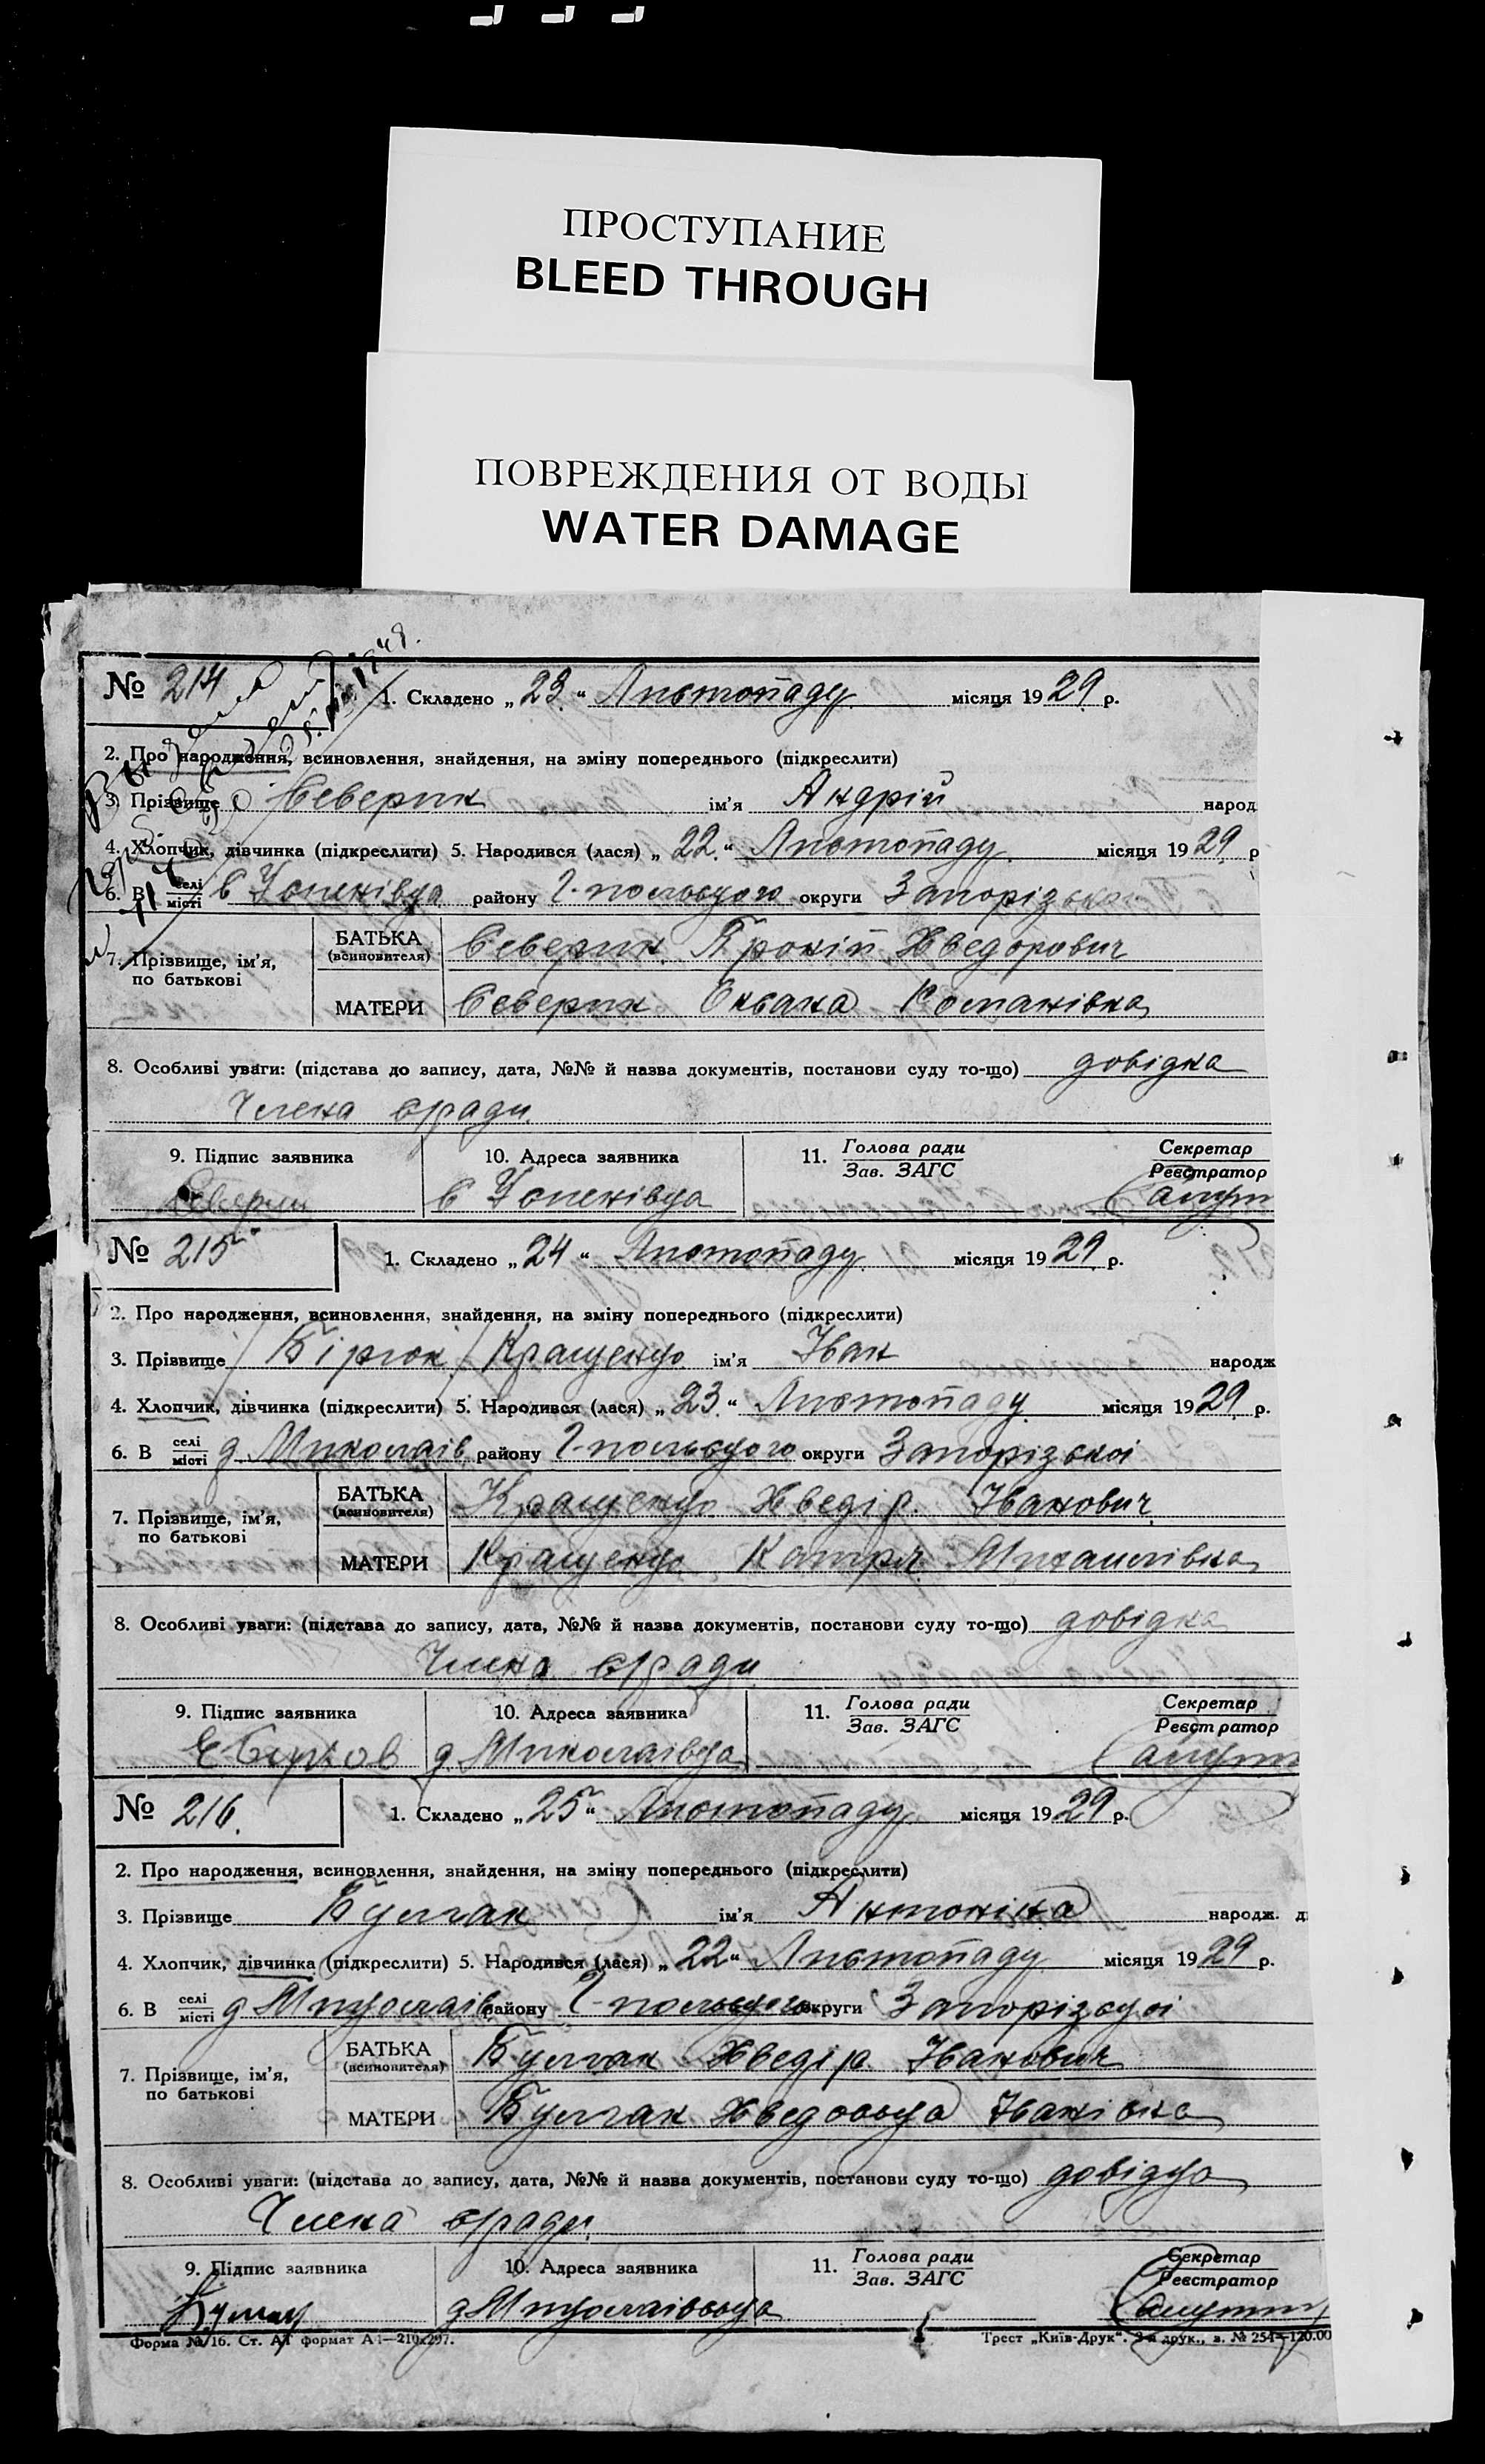 ПРОСТУПАНИЕ
BLEED THROUGH
ПОВРЕЖДЕНИЯ ОТ ВОДЫ
WATER DAMAGE
№ 214
1. Складено „ 23 “ Листопаду місяця 1929 р.
2. Про народження, всиновлення, знайдення, на зміну попереднього (підкреслити)
3. Прізвище Северин ім'я Андрій народ
4. Хлопчик, дівчинка (підкреслити) 5. Народився (лася) „ 22 “ Листопаду місяця 1929 р
6. В селі місті с Успенівка району Г-польського округи Запорізької
7. Прізвище, ім'я, по батькові
БАТЬКА (всиновителя) Северин Прокіп Хведорович
МАТЕРИ Северин Оксана Романівна
8. Особливі уваги: (підстава до запису, дата, №№ й назва документів, постанови суду то-що) довідка
Члена с/ради.
9. Підпис заявника 10. Адреса заявника 11. Голова ради Зав. ЗАГС Секретар Реєстратор
Северин с Успенівка
№ 215
1. Складено „ 24 “ Листопаду місяця 1929 р.
2. Про народження, всиновлення, знайдення, на зміну попереднього (підкреслити)
3. Прізвище / Бірюк / Кращенко ім'я Іван народж
4. Хлопчик, дівчинка (підкреслити) 5. Народився (лася) „ 23 “ Листопаду місяця 1929 р.
6. В селі місті д Миколаїв району Г-польського округи Запорізької
7. Прізвище, ім'я, по батькові
БАТЬКА (всиновителя) Кращенко Хведір Іванович
МАТЕРИ Кращенко Катря Михайлівна
8. Особливі уваги: (підстава до запису, дата, №№ й назва документів, постанови суду то-що) довідка
Члена с/ради
9. Підпис заявника 10. Адреса заявника 11. Голова ради Зав. ЗАГС Секретар Реєстратор
д Миколаївка
№ 216.
1. Складено „ 25 “ Листопаду місяця 1929 р.
2. Про народження, всиновлення, знайдення, на зміну попереднього (підкреслити)
3. Прізвище Булгак ім'я Антоніна народж. д
4. Хлопчик, дівчинка (підкреслити) 5. Народився (лася) „ 22 “ Листопаду місяця 1929 р.
6. В селі місті д Миколаїв району Г-польського округи Запорізської
7. Прізвище, ім'я, по батькові
БАТЬКА (всиновителя) Булгак Хведір Іванович
МАТЕРИ Булгак Хведоська Іванівна
8. Особливі уваги: (підстава до запису, дата, №№ й назва документів, постанови суду то-що) довідка
Члена с/ради.
9. Підпис заявника 10. Адреса заявника 11. Голова ради Зав. ЗАГС Секретар Реєстратор
Булгак
Форма № 16. Ст. АТ формат А4—210х297. Трест „Київ-Друк“. 2-а друк., з. № 254—120.00